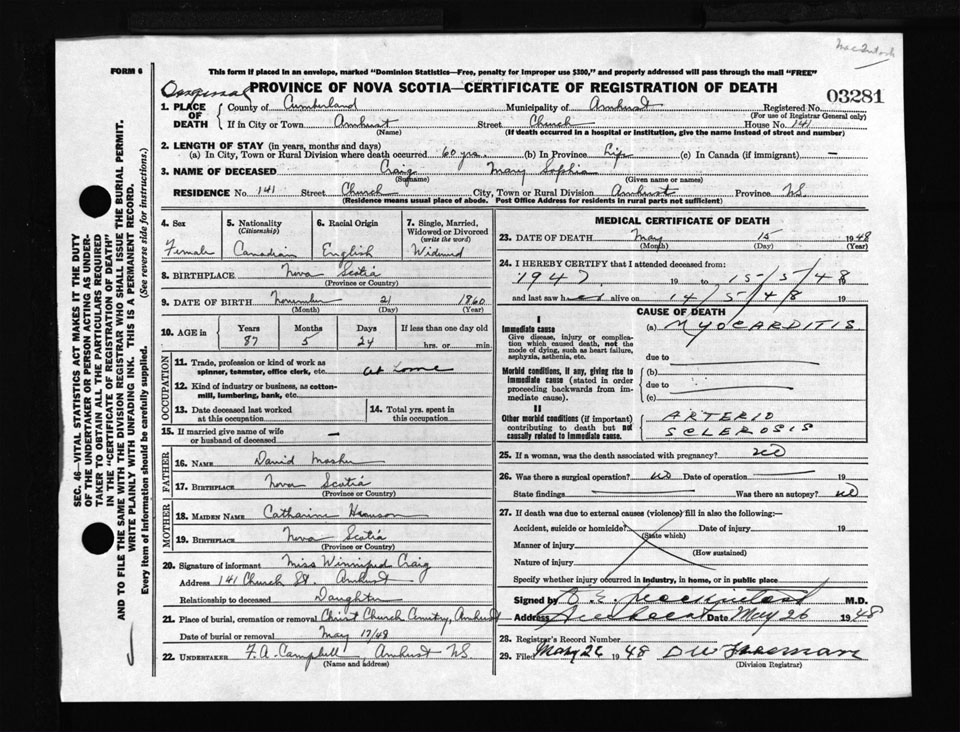 MacIntosh
FORM 6
This form if placed in an envelope, marked "Dominion Statistics—Free, penalty for improper use $300," and properly addressed will pass through the mail "FREE"
PROVINCE OF NOVA SCOTIA—CERTIFICATE OF REGISTRATION OF DEATH
03281
1. PLACE OF DEATH
County of Cumberland Municipality of Amherst Registered No.
(For use of Registrar General only)
If in City or Town Amherst Street Church House No. 141
(Name) (If death occurred in a hospital or institution, give the name instead of street and number)
2. LENGTH OF STAY (in years, months and days)
(a) In City, Town or Rural Division where death occurred 60 yrs. (b) In Province Life (c) In Canada (if immigrant) —
3. NAME OF DECEASED Craig Mary Sophia
(Surname) (Given name or names)
RESIDENCE No. 141 Street Church City, Town or Rural Division Amherst Province NS
(Residence means usual place of abode. Post Office Address for residents in rural parts not sufficient)
4. Sex
Female
5. Nationality
(Citizenship)
Canadian
6. Racial Origin
English
7. Single, Married,
Widowed or Divorced
(write the word)
Widowed
8. BIRTHPLACE Nova Scotia
(Province or Country)
9. DATE OF BIRTH November 21 1860
(Month) (Day) (Year)
10. AGE in
Years Months Days If less than one day old
87 5 24 hrs. or min.
OCCUPATION
11. Trade, profession or kind of work as
spinner, teamster, office clerk, etc. at home
12. Kind of industry or business, as cotton-
mill, lumbering, bank, etc.
13. Date deceased last worked
at this occupation
14. Total yrs. spent in
this occupation
15. If married give name of wife
or husband of deceased —
FATHER
16. NAME David Mosher
17. BIRTHPLACE Nova Scotia
(Province or Country)
MOTHER
18. MAIDEN NAME Catharine
19. BIRTHPLACE Nova Scotia
(Province or Country)
20. Signature of informant Miss Winnifred Craig
Address 141 Church St. Amherst
Relationship to deceased Daughter
21. Place of burial, cremation or removal Christ Church Cemetry, Amherst
Date of burial or removal May 17/48
22. UNDERTAKER F. A. Campbell Amherst NS
(Name and address)
MEDICAL CERTIFICATE OF DEATH
23. DATE OF DEATH May 15 1948
(Month) (Day) (Year)
24. I HEREBY CERTIFY that I attended deceased from:
1947 19 to 15/5/48 19
and last saw her alive on 14/5/48 19
CAUSE OF DEATH
I
Immediate cause
Give disease, injury or complica-
tion which caused death, not the
mode of dying, such as heart failure,
asphyxia, asthenia, etc.
(a) MYOCARDITIS
due to
Morbid conditions, if any, giving rise to
immediate cause (stated in order
proceeding backwards from im-
mediate cause).
(b)
due to
(c)
II
Other morbid conditions (if important)
contributing to death but not
causally related to immediate cause.
ARTERIO
SCLEROSIS
25. If a woman, was the death associated with pregnancy? NO
26. Was there a surgical operation? NO Date of operation 19
State findings Was there an autopsy? NO
27. If death was due to external causes (violence) fill in also the following:—
Accident, suicide or homicide? Date of injury 19
(State which)
Manner of injury
(How sustained)
Nature of injury
Specify whether injury occurred in industry, in home, or in public place
Signed by M.D.
Address Amherst Date May 26 1948
28. Registrar's Record Number
29. Filed May 26 1948
(Division Registrar)
SEC. 46—VITAL STATISTICS ACT MAKES IT THE DUTY
OF THE UNDERTAKER OR PERSON ACTING AS UNDER-
TAKER TO OBTAIN ALL THE PARTICULARS REQUIRED
IN THE "CERTIFICATE OF REGISTRATION OF DEATH"
AND TO FILE THE SAME WITH THE DIVISION REGISTRAR WHO SHALL ISSUE THE BURIAL PERMIT.
WRITE PLAINLY WITH UNFADING INK. THIS IS A PERMANENT RECORD.
Every item of information should be carefully supplied. (See reverse side for instructions.)